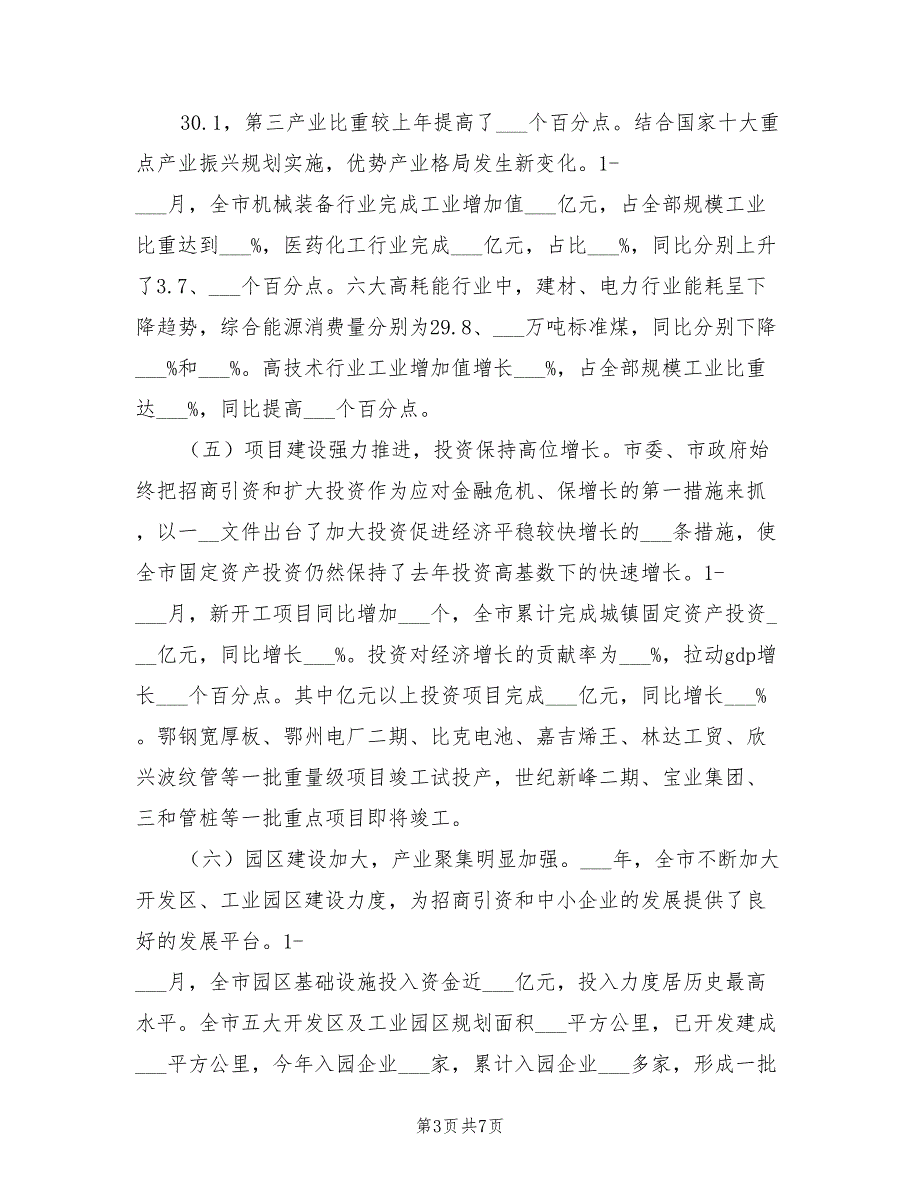 30.1，第三产业比重较上年提高了___个百分点。结合国家十大重
点产业振兴规划实施，优势产业格局发生新变化。1-
___月，全市机械装备行业完成工业增加值___亿元，占全部规模工业
比重达到___%，医药化工行业完成___亿元，占比___%，同比分别上升
了3.7、___个百分点。六大高耗能行业中，建材、电力行业能耗呈下
降趋势，综合能源消费量分别为29.8、___万吨标准煤，同比分别下降
___%和___%。高技术行业工业增加值增长___%，占全部规模工业比重
达___%，同比提高___个百分点。
（五）项目建设强力推进，投资保持高位增长。市委、市政府始
终把招商引资和扩大投资作为应对金融危机、保增长的第一措施来抓
，以一__文件出台了加大投资促进经济平稳较快增长的___条措施，使
全市固定资产投资仍然保持了去年投资高基数下的快速增长。1-
___月，新开工项目同比增加___个，全市累计完成城镇固定资产投资_
__亿元，同比增长___%。投资对经济增长的贡献率为___%，拉动gdp增
长___个百分点。其中亿元以上投资项目完成___亿元，同比增长___%
。鄂钢宽厚板、鄂州电厂二期、比克电池、嘉吉烯王、林达工贸、欣
兴波纹管等一批重量级项目竣工试投产，世纪新峰二期、宝业集团、
三和管桩等一批重点项目即将竣工。
（六）园区建设加大，产业聚集明显加强。___年，全市不断加大
开发区、工业园区建设力度，为招商引资和中小企业的发展提供了良
好的发展平台。1-
___月，全市园区基础设施投入资金近___亿元，投入力度居历史最高
水平。全市五大开发区及工业园区规划面积___平方公里，已开发建成
___平方公里，今年入园企业___家，累计入园企业___多家，形成一批
第3页共7页